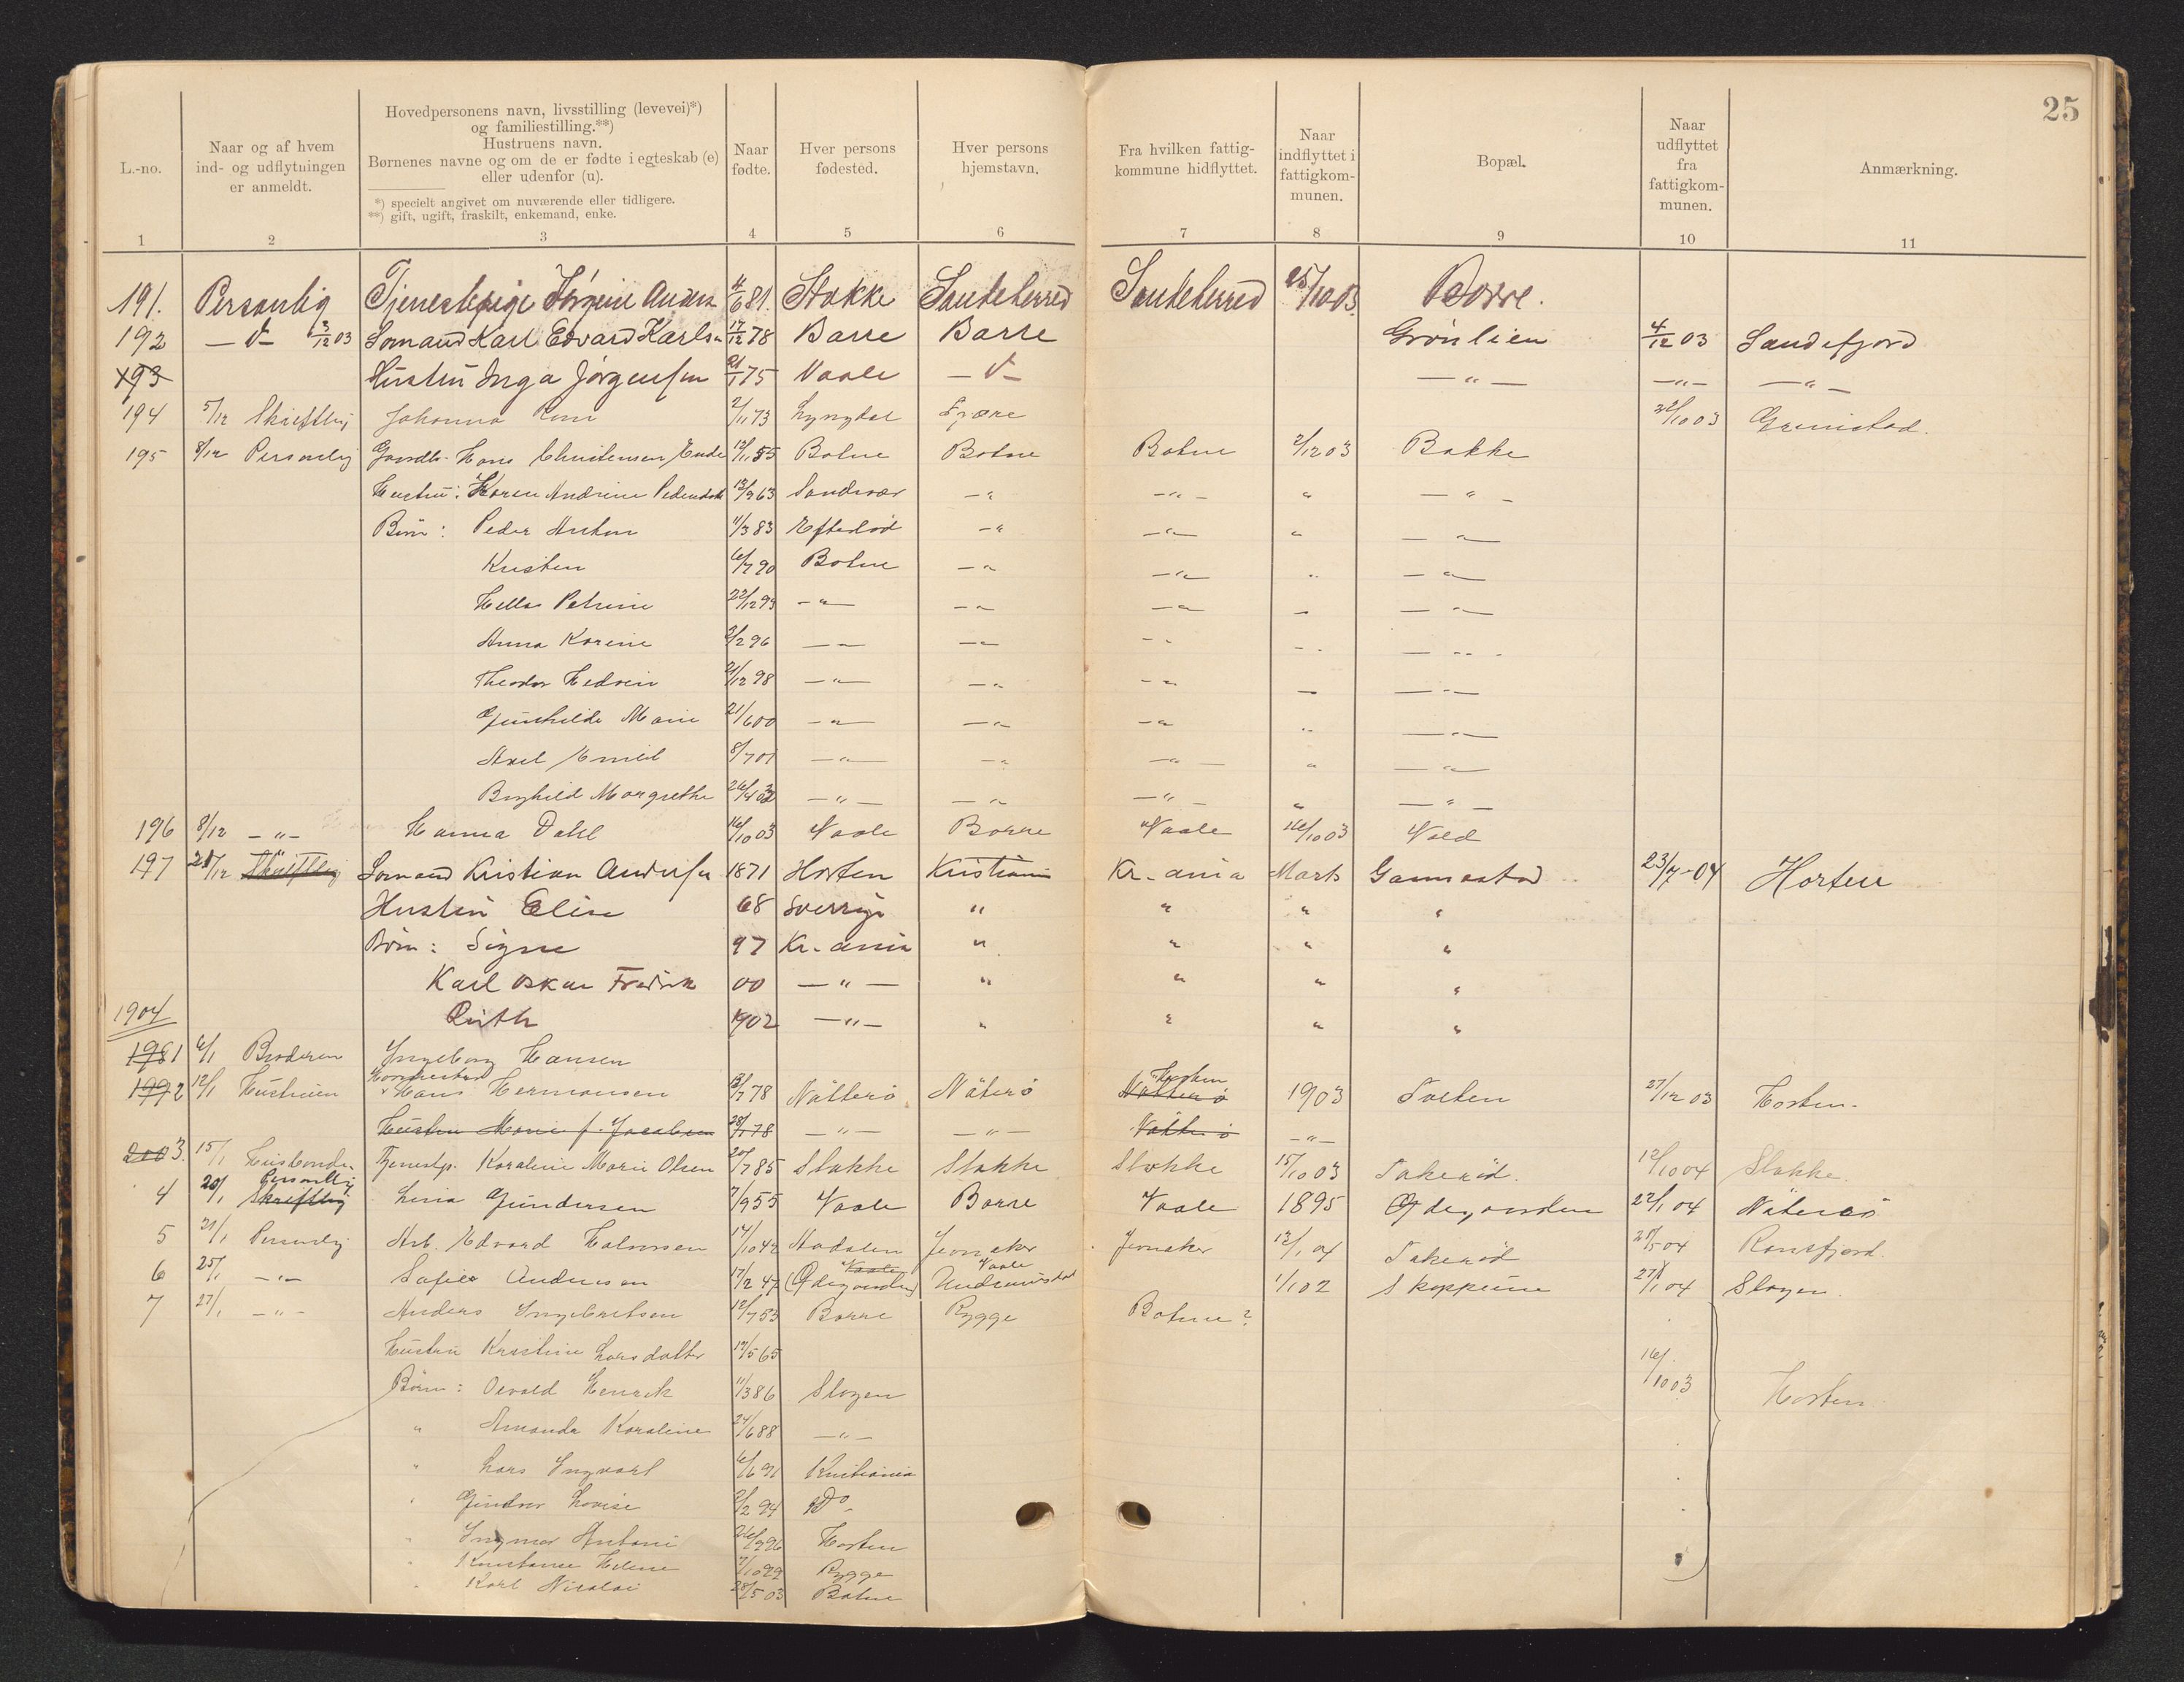 25
L.-no.
Naar og af hvem ind- og udflytningen er anmeldt.
Hovedpersonens navn, livsstilling (levevei)*) og familiestilling.**)
Hustruens navn.
Børnenes navne og om de er fødte i egteskab (e) eller udenfor (u).
*) specielt angivet om nuværende eller tidligere.
**) gift, ugift, fraskilt, enkemand, enke.
Naar fødte.
Hver persons fødested.
Hver persons hjemstavn.
Fra hvilken fattigkommune hidflyttet.
Naar indflyttet i fattigkommunen.
Bopæl.
Naar udflyttet fra fattigkommunen.
Anmærkning.
1 2 3 4 5 6 7 8 9 10 11
191. Personlig Tjenestepige Jørgine Anders 4/6 81. Stokke Sandeherred Sandeherred 25/10 03. Borre.
192 — d — 3/12 03 Sømand Karl Edvard Karlsn 17/12 78 Barre Barre Grönlien 4/12 03 Sandefjord
193 Hustru Inga Jørgensen 21/1 75 Vaale — d — — " — — " — — " —
194 5/12 Skriftlig Johanna 2/11 73 Lyngdal Fjære 22/10 03 Grimstad.
195 8/12 Personlig Gaardb. Hans Christensen Ende 12/11 55 Botne Botne Botne 2/12 03 Bakke
Hustru: Karen Andrine Pedersdat 12/9 63 Sandsvær — " — " — " — " —
Børn: Peder Anton 11/3 83 Eftelød — " — " — " — " —
Kristen 6/7 90 Botne — " — " — " — " —
Hella Petrine 22/12 93 — " — — " — " — — " —
Anna Karine 3/2 96 — " — — " — " — " — " —
Theodor Hedvin 21/12 98 — " — — " — " — — " —
Gunhilde Marie 21/6 00 — " — — " — " " — " —
Axel Emil 8/7 01 — " — — " — " — " — " —
Borghild Margrethe 26/4 03 — " — — " — " — " — " —
196 8/12 — " — Hanna Dahl 16/10 03 Vaale Borre Vaale 16/10 03 Vold
197 21/12 Skriftlig Sømand Kristian Andersen 1871 Horten Kristiania Kr-ania Marts Gannestad 23/7-04 Horten
Hustru Elise 68 Sverrige " " " "
Børn: Signe 97 Kr-ania " " " "
Karl Oskar Fredrik 00 — " — " " " "
1904
Ruth 1902 — " — " " " "
198 1 6/1 Broderen Ingeborg Hansen
199 2 12/1 Hustruen Hans Hermansen 13/7 78 Nötterö Nöterö Nötterö Horten 1903 Solten 27/12 03 Horten.
Hustru Marie f. Jacobsen 28/1 78 — " — — " — Nötterö — " —
200 3. 15/1 Husbonden Tjenestp. Karaline Marie Olsen 20/7 85 Stokke Stokke Stokke 15/10 03 Sakeröd. 12/10 04 Stokke.
4 20/1 Skriftlig Personlig Lina Gundersen 7/9 55 Vaale Borre Vaale 1895 Ødegaarden 22/1 04 Nöterö
5 21/1 Personlig Arb. Edvard Halvorsen 14/10 42 Aadalen Jevnaker Jevnaker 12/1 04 Sakeröd 28/5 04 Ransfjord.
6 25/1 — " — Sofie Andersen 17/2 47 (Ødegaarden) Vaale Vaale 1/1 02 Skoppum 27/1 04 Slagen.
7 27/1 — " — Anders Ingebretsen 12/7 53 Borre Rygge Botne?
Hustru Kristine Larsdatter 17/5 65
Børn: Osvald Henrik 11/3 86 Slagen 16/10 03 Horten
" Amanda Karoline 24/6 88 — " —
" Lars Ingvart 6/6 91 Kristiania
" Gundvor Lovise 3/2 94 Do
" Ingvar Antoni 26/9 96 Horten
" Konstanse Helene 7/10 99 Rygge
" Karl Nicolai 28/5 03 Botne